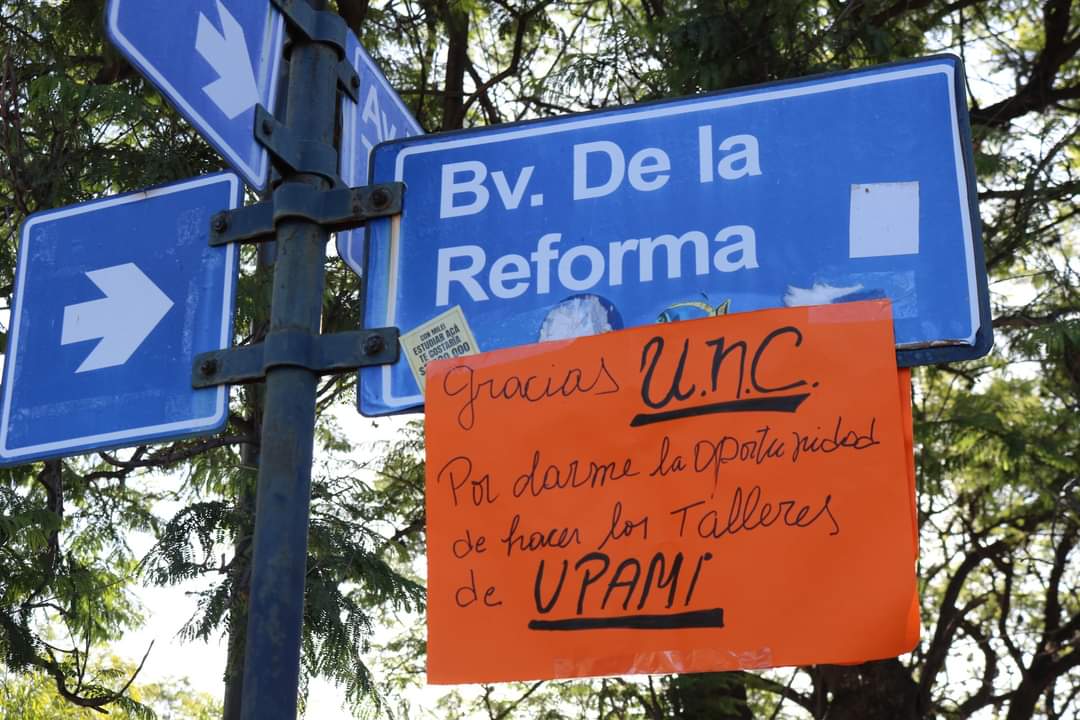 Av.
Bv. De la
Reforma
CON MILEI
ESTUDIAR ACÁ
TE COSTARÍA
Gracias U.N.C.
Por darme la oportunidad
de hacer los Talleres
de UPAMI